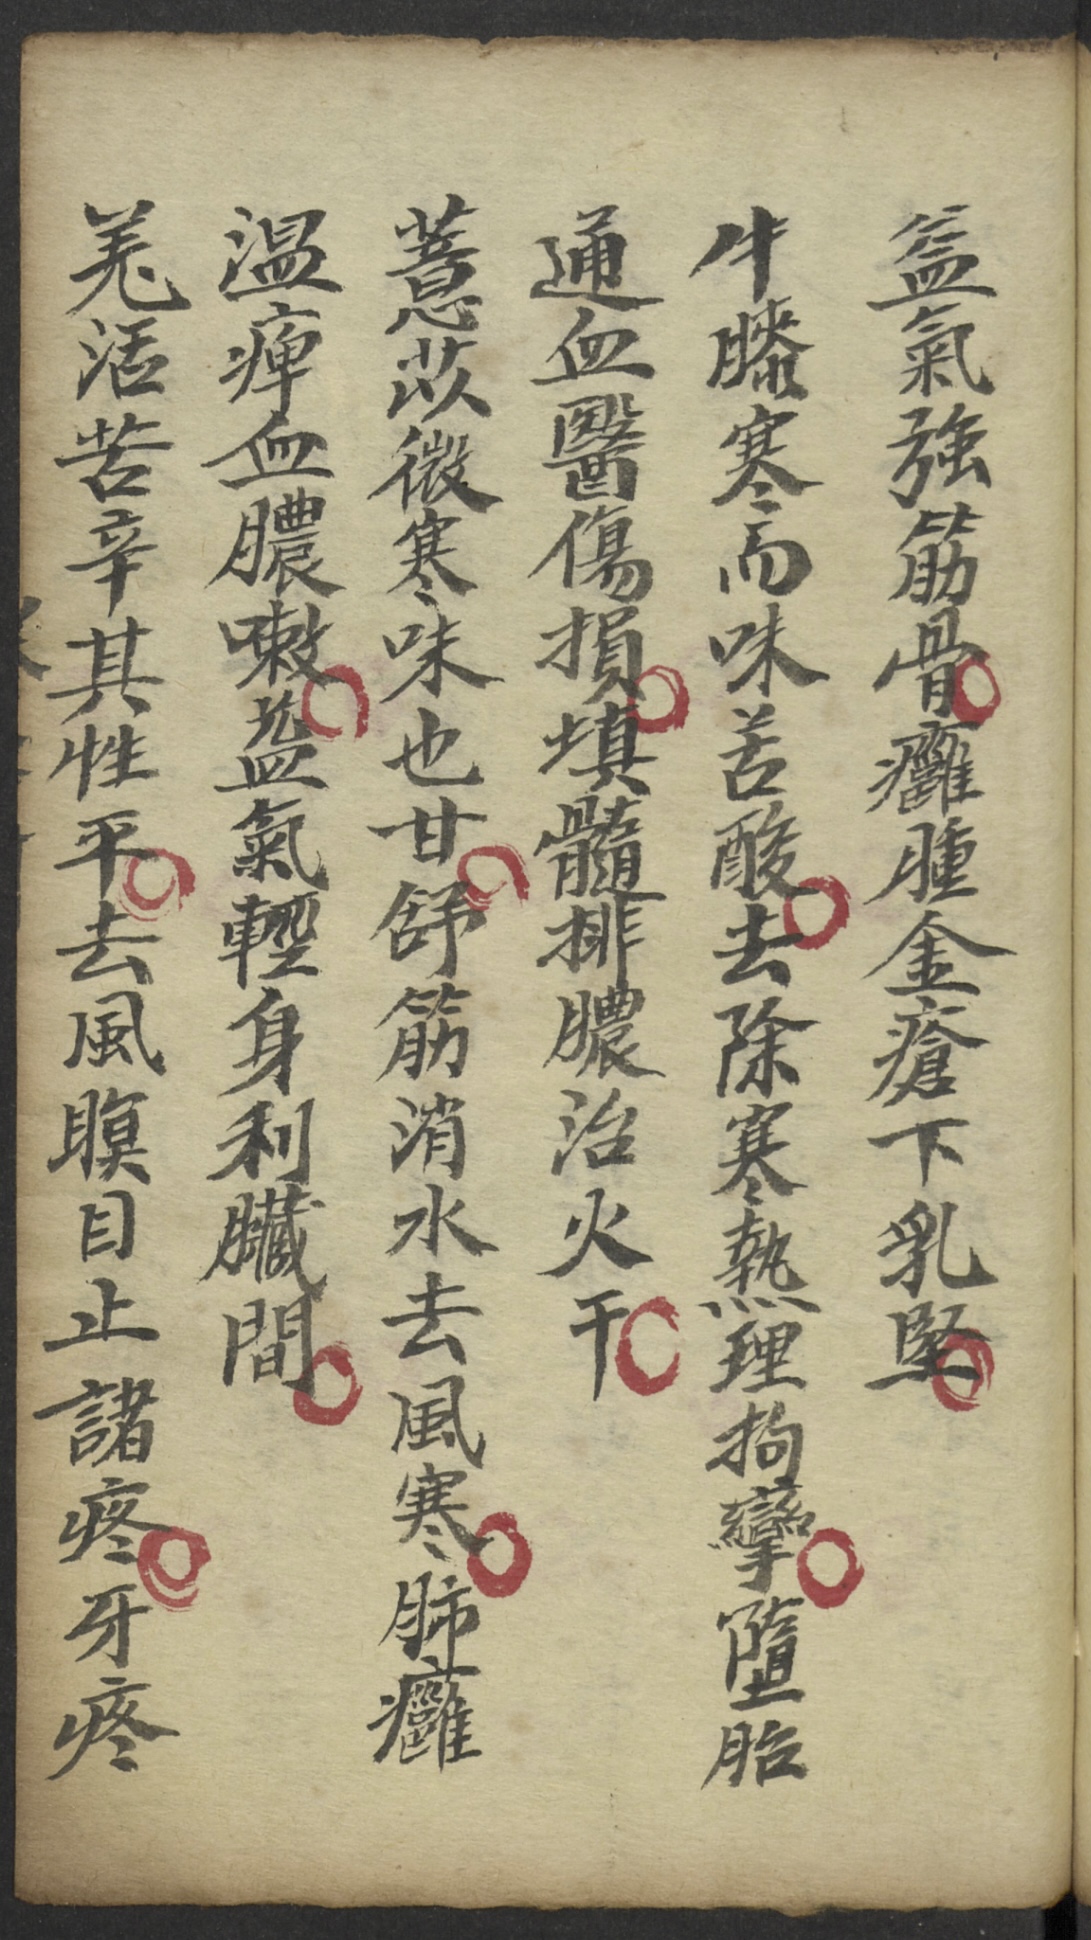 益氣強筋骨癰腫金瘡下乳堅
牛膝寒而味苦酸去除寒熱理拘攣墮胎
通血醫傷損填髓排膿治火干
薏苡微寒味也甘舒筋消水去風寒肺癰
溫痺血膿嗽益氣輕身利臟間
羌活苦辛其性平去風瞑目止諸疼牙疼